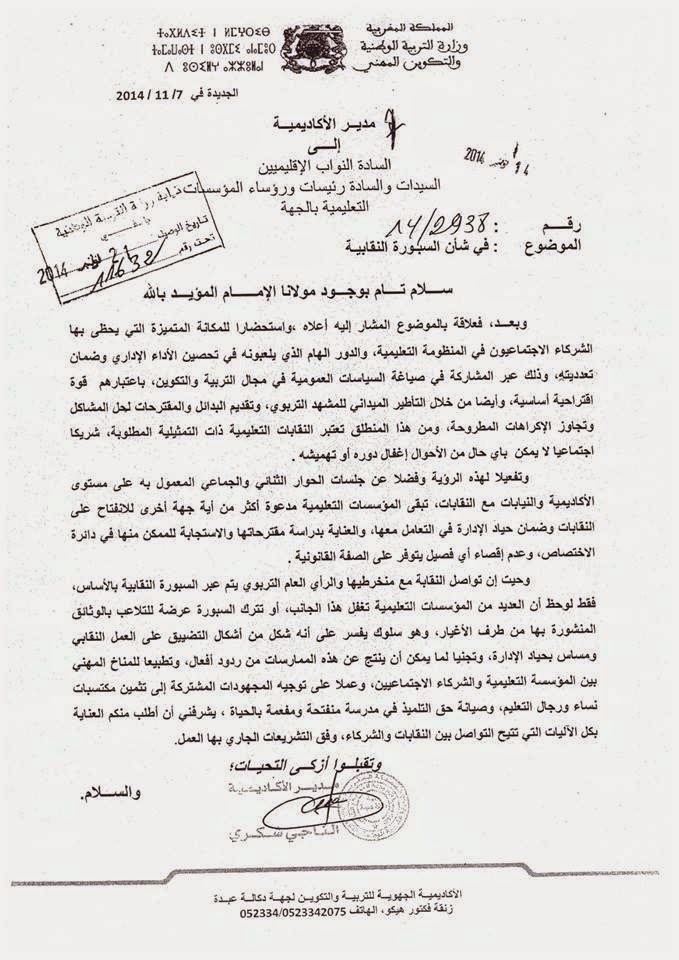 المملكة المغربية
وزارة التربية الوطنية
والتكوين المهني
ⵜⴰⴳⵍⴷⵉⵜ ⵏ ⵍⵎⵖⵔⵉⴱ
الجديدة في 7/ 11 / 2014
مدير الأكاديمية
إلى
السادة النواب الإقليميين
السيدات والسادة رئيسات ورؤساء المؤسسات
التعليمية بالجهة
14 نونبر 2014
رقم : 14/2938
الموضوع : في شأن السبورة النقابية
تاريخ الوصول 21 نونبر 2014
تحت رقم 11632
سلام تام بوجود مولانا الإمام المؤيد بالله
وبعد، فعلاقة بالموضوع المشار إليه أعلاه ،واستحضارا للمكانة المتميزة التي يحظى بها
الشركاء الاجتماعيون في المنظومة التعليمية، والدور الهام الذي يلعبونه في تحصين الأداء الإداري وضمان
تعدديته، وذلك عبر المشاركة في صياغة السياسات العمومية في مجال التربية والتكوين، باعتبارهم قوة
اقتراحية أساسية، وأيضا من خلال التأطير الميداني للمشهد التربوي، وتقديم البدائل والمقترحات لحل المشاكل
وتجاوز الإكراهات المطروحة، ومن هذا المنطلق تعتبر النقابات التعليمية ذات التمثيلية المطلوبة، شريكا
اجتماعيا لا يمكن بأي حال من الأحوال إغفال دوره أو تهميشه .
وتفعيلا لهذه الرؤية وفضلا عن جلسات الحوار الثنائي والجماعي المعمول به على مستوى
الأكاديمية والنيابات مع النقابات، تبقى المؤسسات التعليمية مدعوة أكثر من أية جهة أخرى للانفتاح على
النقابات وضمان حياد الإدارة في التعامل معها، والعناية بدراسة مقترحاتها والاستجابة للممكن منها في دائرة
الاختصاص، وعدم إقصاء أي فصيل يتوفر على الصفة القانونية .
وحيت إن تواصل النقابة مع منخرطيها والرأي العام التربوي يتم عبر السبورة النقابية بالأساس،
فقط لوحظ أن العديد من المؤسسات التعليمية تغفل هذا الجانب، أو تترك السبورة عرضة للتلاعب بالوثائق
المنشورة بها من طرف الأغيار، وهو سلوك يفسر على أنه شكل من أشكال التضييق على العمل النقابي
ومساس بحياد الإدارة، وتجنيا لما يمكن أن ينتج عن هذه الممارسات من ردود أفعال، وتطبيعا للمناخ المهني
بين المؤسسة التعليمية والشركاء الاجتماعيين، وعملا على توجيه المجهودات المشتركة إلى تثمين مكتسبات
نساء ورجال التعليم، وصيانة حق التلميذ في مدرسة منفتحة ومفعمة بالحياة ، يشرفني أن أطلب منكم العناية
بكل الآليات التي تتيح التواصل بين النقابات والشركاء، وفق التشريعات الجاري بها العمل.
وتقبلوا أزكى التحيات؛
والسلام.
مدير الأكاديمية
الناجي شكري
الأكاديمية الجهوية للتربية والتكوين لجهة دكالة عبدة
زنقة فكتور هيكو، الهاتف 052334/0523342075